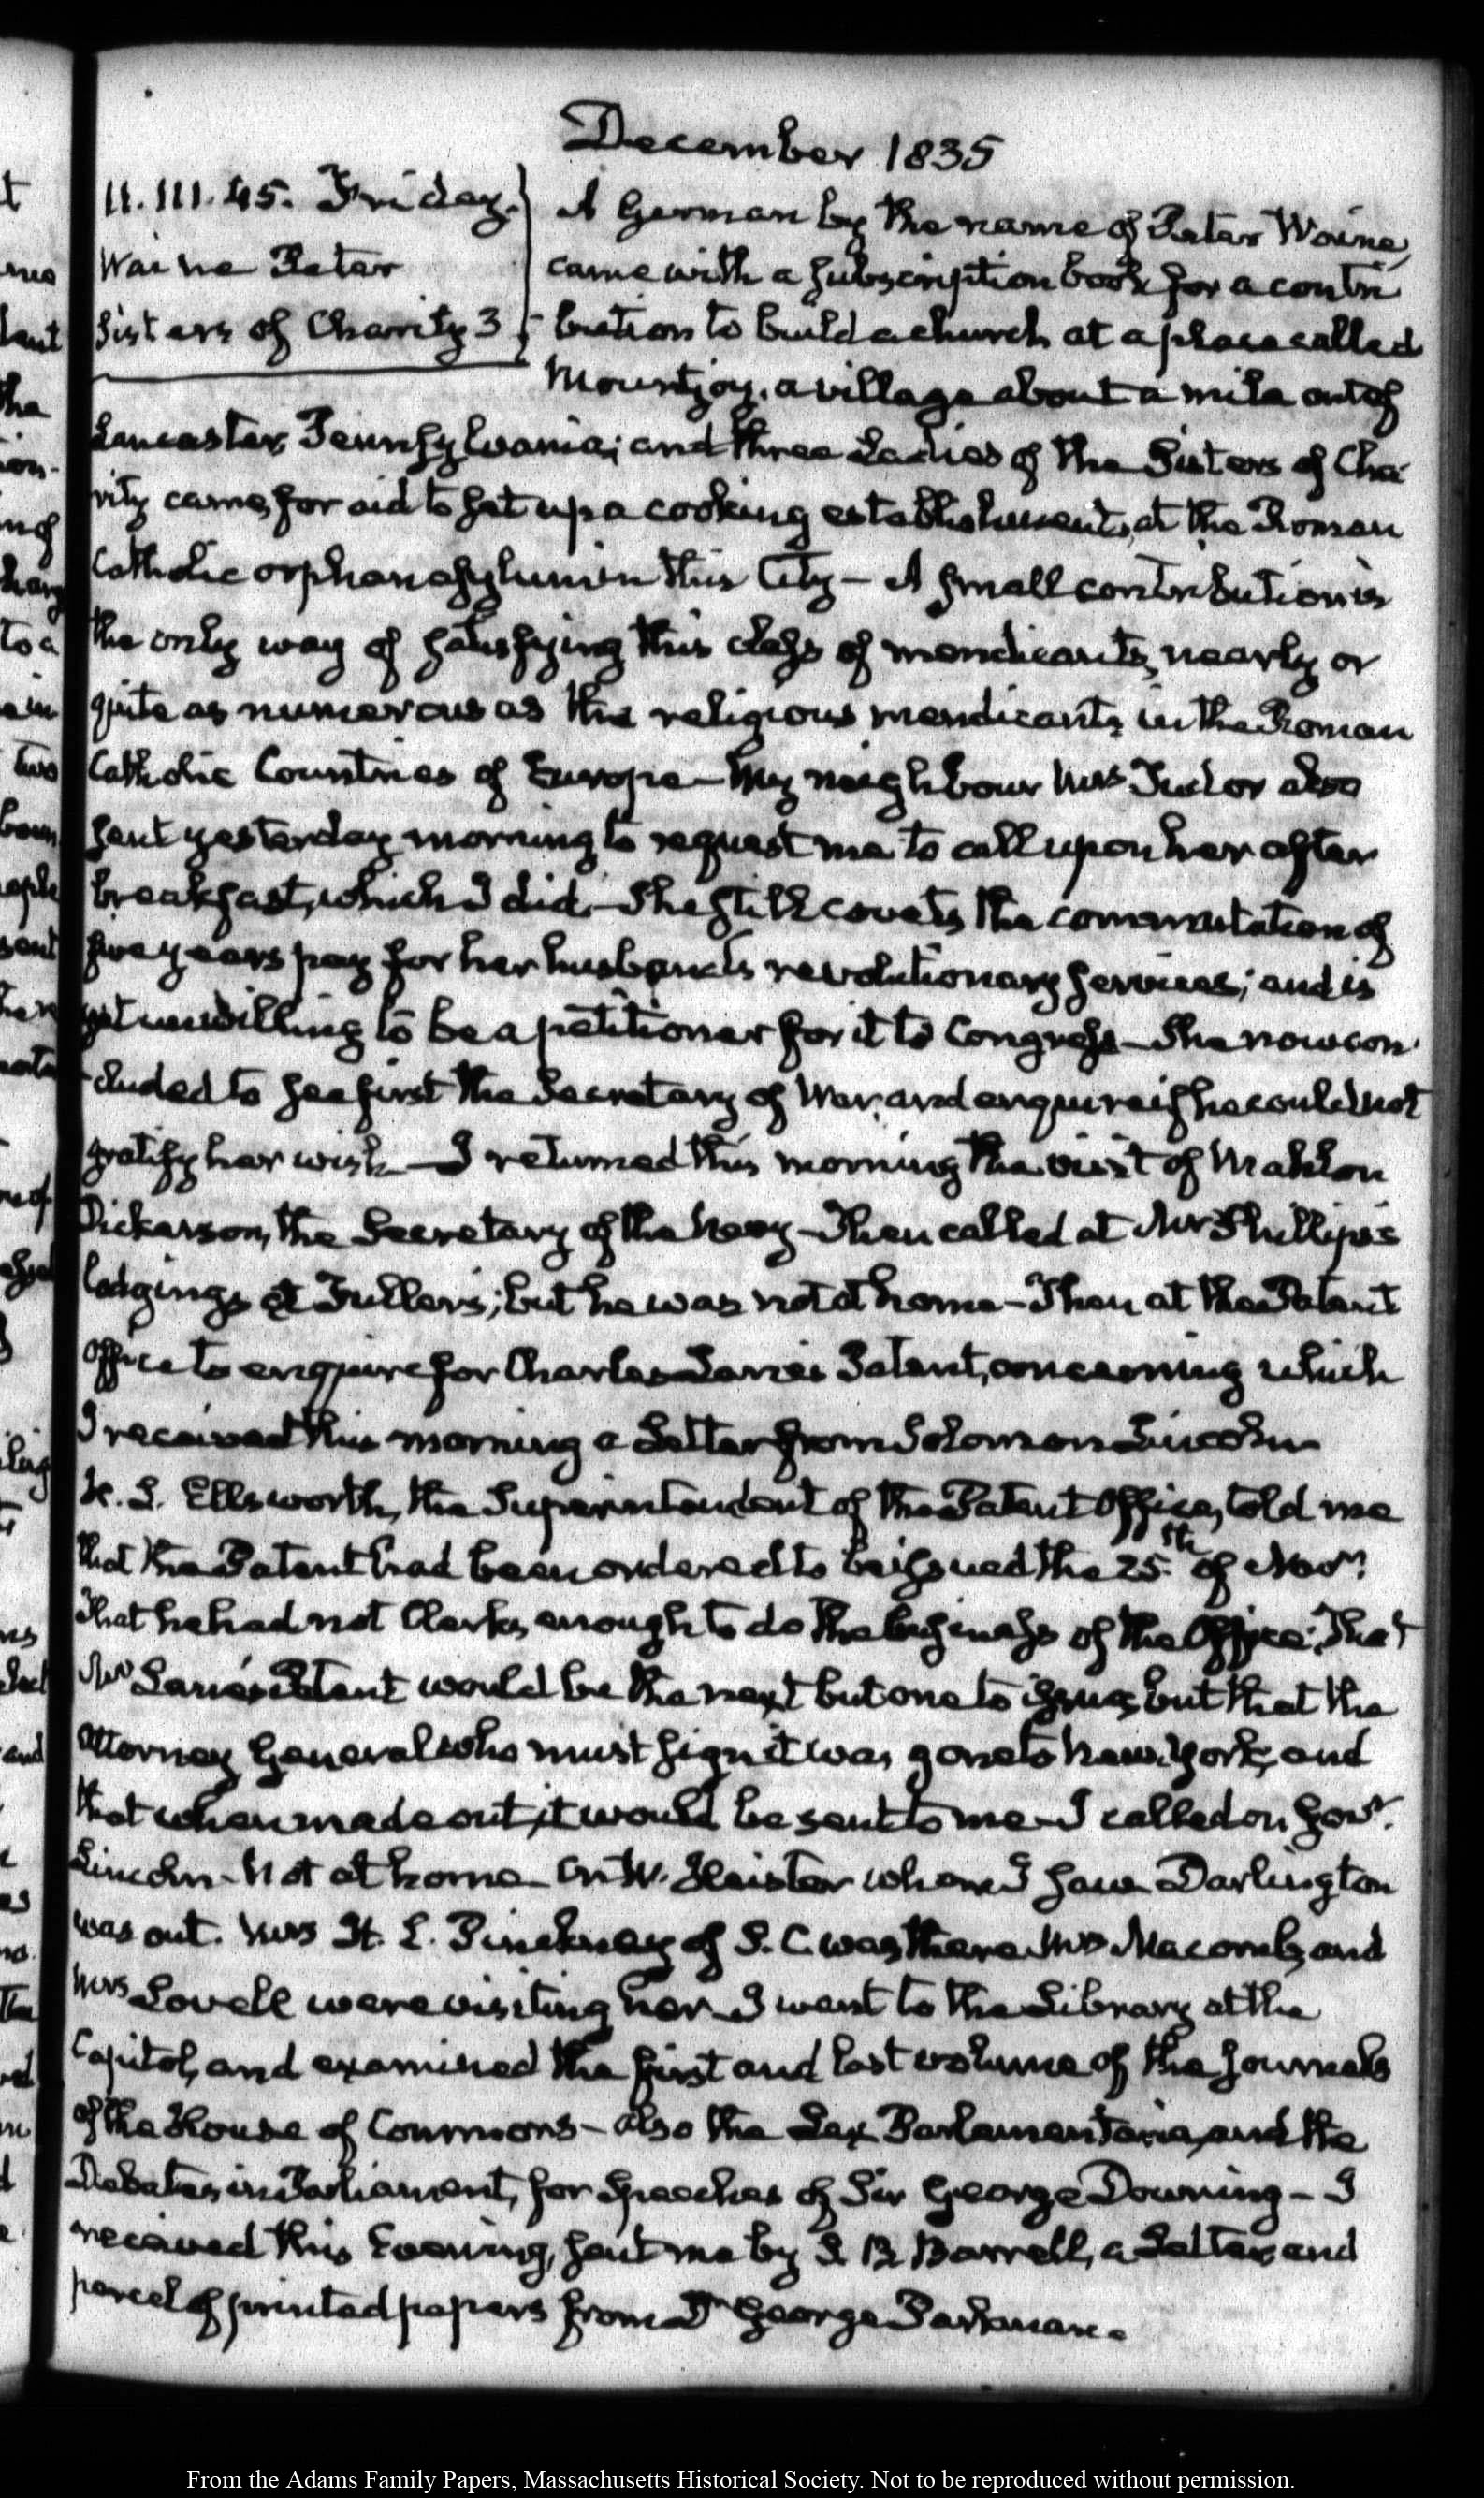 December 1835
11. III. 45. Friday.
Waine Peter
Sisters of Charity 3
A German by the name of Peter Waine,
came with a subscription book for a contri
bution to build a church at a place called
Mountjoy, a village about a mile out of
Lancaster, Pennsylvania; and three Ladies of the Sisters of Cha
rity came, for aid to set up a cooking establishment, at the Roman
Catholic orphan asylum in this City — A small contribution is
the only way of satisfying this class of mendicants, nearly or
quite as numerous as the religious mendicants in the Roman
Catholic Countries of Europe — My neighbour Mrs Tudor also
sent yesterday morning to request me to call upon her after
breakfast, which I did. — She still covets the commutation of
five years pay for her husband's revolutionary services; and is
yet unwilling to be a petitioner for it to Congress — She now con
cluded to see first the Secretary of War, and enquire if he could not
gratify her wish — I returned this morning the visit of Mahlon
Dickerson, the Secretary of the Navy — Then called at Mr Phillips's
lodgings at Fuller's; but he was not at home — Then at the Patent
Office to enquire for Charles Lane's Patent, concerning which
I received this morning a Letter from Solomon Lincoln
H. L. Ellsworth, the Superintendent of the Patent Office, told me
that the Patent had been ordered to be issued the 25th of Novr.
That he had not Clerks enough to do the business of the Office: That
Mr Lane's Patent would be the next but one to issue, but that the
Attorney General who must sign it was gone to New-York, and
that when made out, it would be sent to me — I called on Govr.
Lincoln — Not at home — On W. Heister whom I saw — Darlington
was out. Mrs H. L. Pinckney of S. C. was there. Mrs Macomb, and
Mrs Lovell were visiting her — I went to the Library at the
Capitol, and examined the first and last volume of the Journals
of the House of Commons — also the Lex Parlamentaria, and the
Debates in Parliament, for Speeches of Sir George Downing — I
received this Evening, sent me by S. B. Barrell, a Letter and
parcel of printed papers from Dr George Parkman.
From the Adams Family Papers, Massachusetts Historical Society. Not to be reproduced without permission.